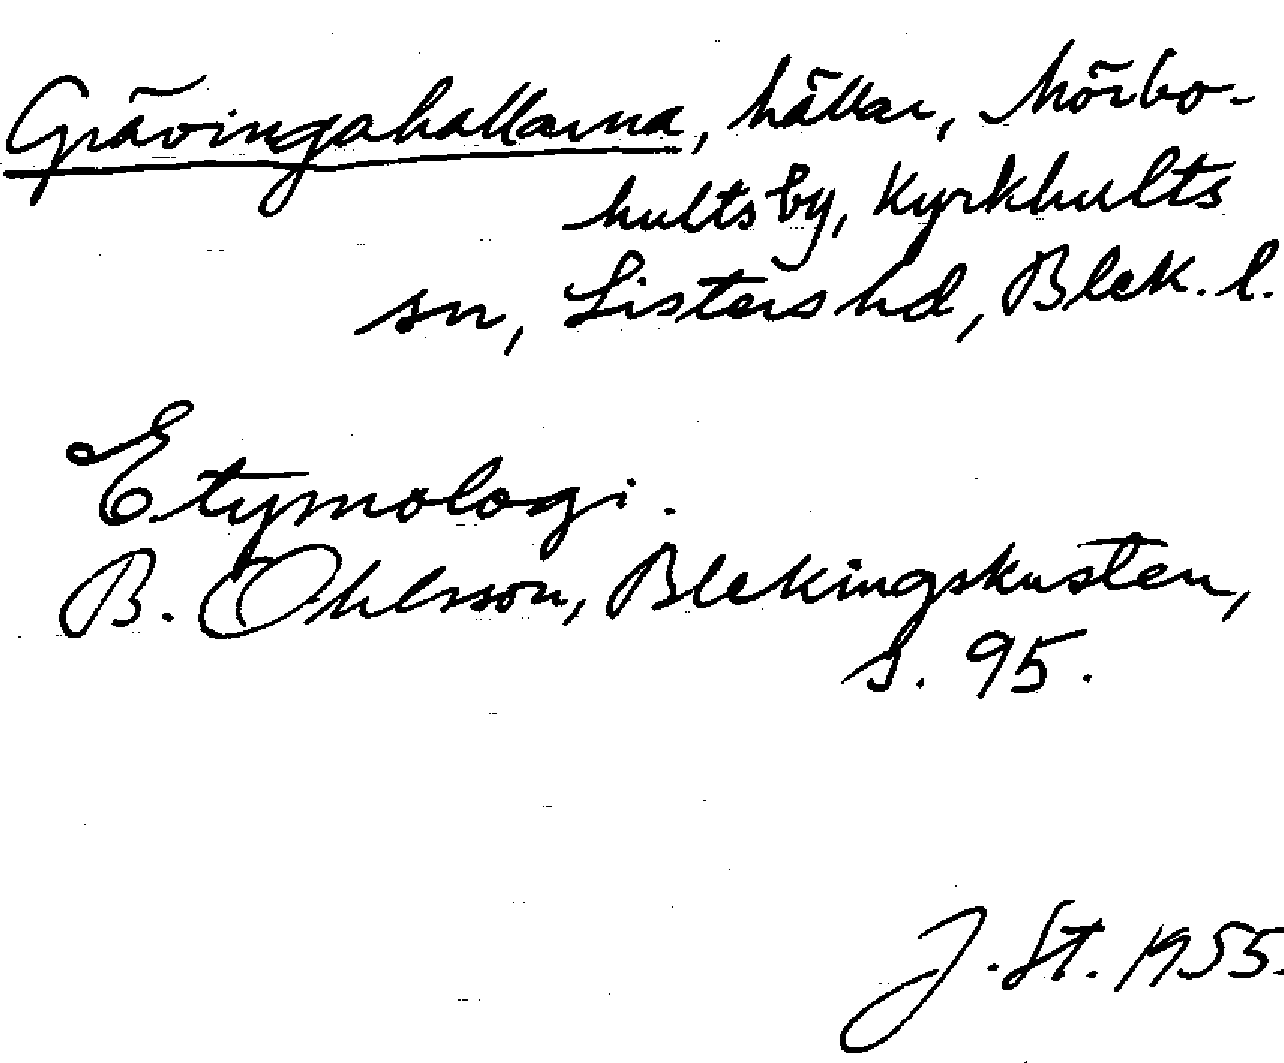 Grävingahallarna, hällar, Mörbo-
hults by, Kyrkhults
sn, Listers hd, Blek. l.
Etymologi.
B. Ohlsson, Blekingskusten,
s. 95.
J. St. 1955.